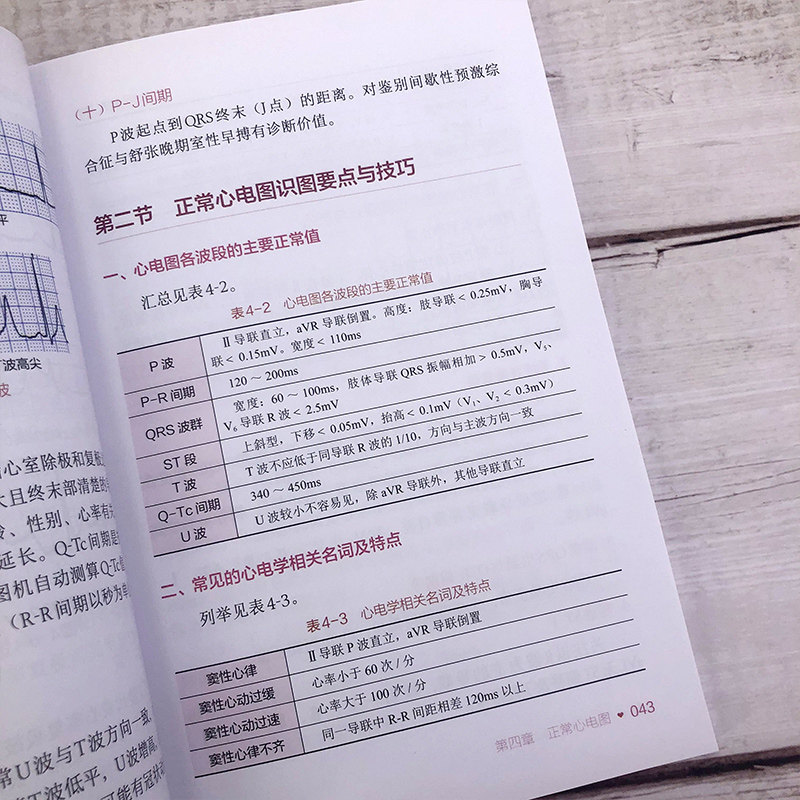 平
波高尖
波
心室除极和复极
大且终末部清楚的
龄、性别、心率有
延长。Q-Tc间期是
图机自动测算Q-Tc
（R-R间期以秒为单
常U波与T波方向一致
T波低平，U波增高
可能有冠状
（十）P-J间期
P波起点到QRS终末（J点）的距离。对鉴别间歇性预激综
合征与舒张晚期室性早搏有诊断价值。
第二节 正常心电图识图要点与技巧
一、心电图各波段的主要正常值
汇总见表4-2。
表4-2 心电图各波段的主要正常值
P波 Ⅱ导联直立，aVR导联倒置。高度：肢导联＜0.25mV，胸导
联＜0.15mV。宽度＜110ms
P-R间期 120～200ms
QRS波群 宽度：60～100ms，肢体导联QRS振幅相加＞0.5mV，V₅、
V₆导联R波＜2.5mV
ST段 上斜型，下移＜0.05mV，抬高＜0.1mV（V₁、V₂＜0.3mV）
T波 T波不应低于同导联R波的1/10，方向与主波方向一致
Q-Tc间期 340～450ms
U波 U波较小不容易见，除aVR导联外，其他导联直立
二、常见的心电学相关名词及特点
列举见表4-3。
表4-3 心电学相关名词及特点
窦性心律 Ⅱ导联P波直立，aVR导联倒置
窦性心动过缓 心率小于60次/分
窦性心动过速 心率大于100次/分
窦性心律不齐 同一导联中R-R间距相差120ms以上
第四章 正常心电图 ♥ 043